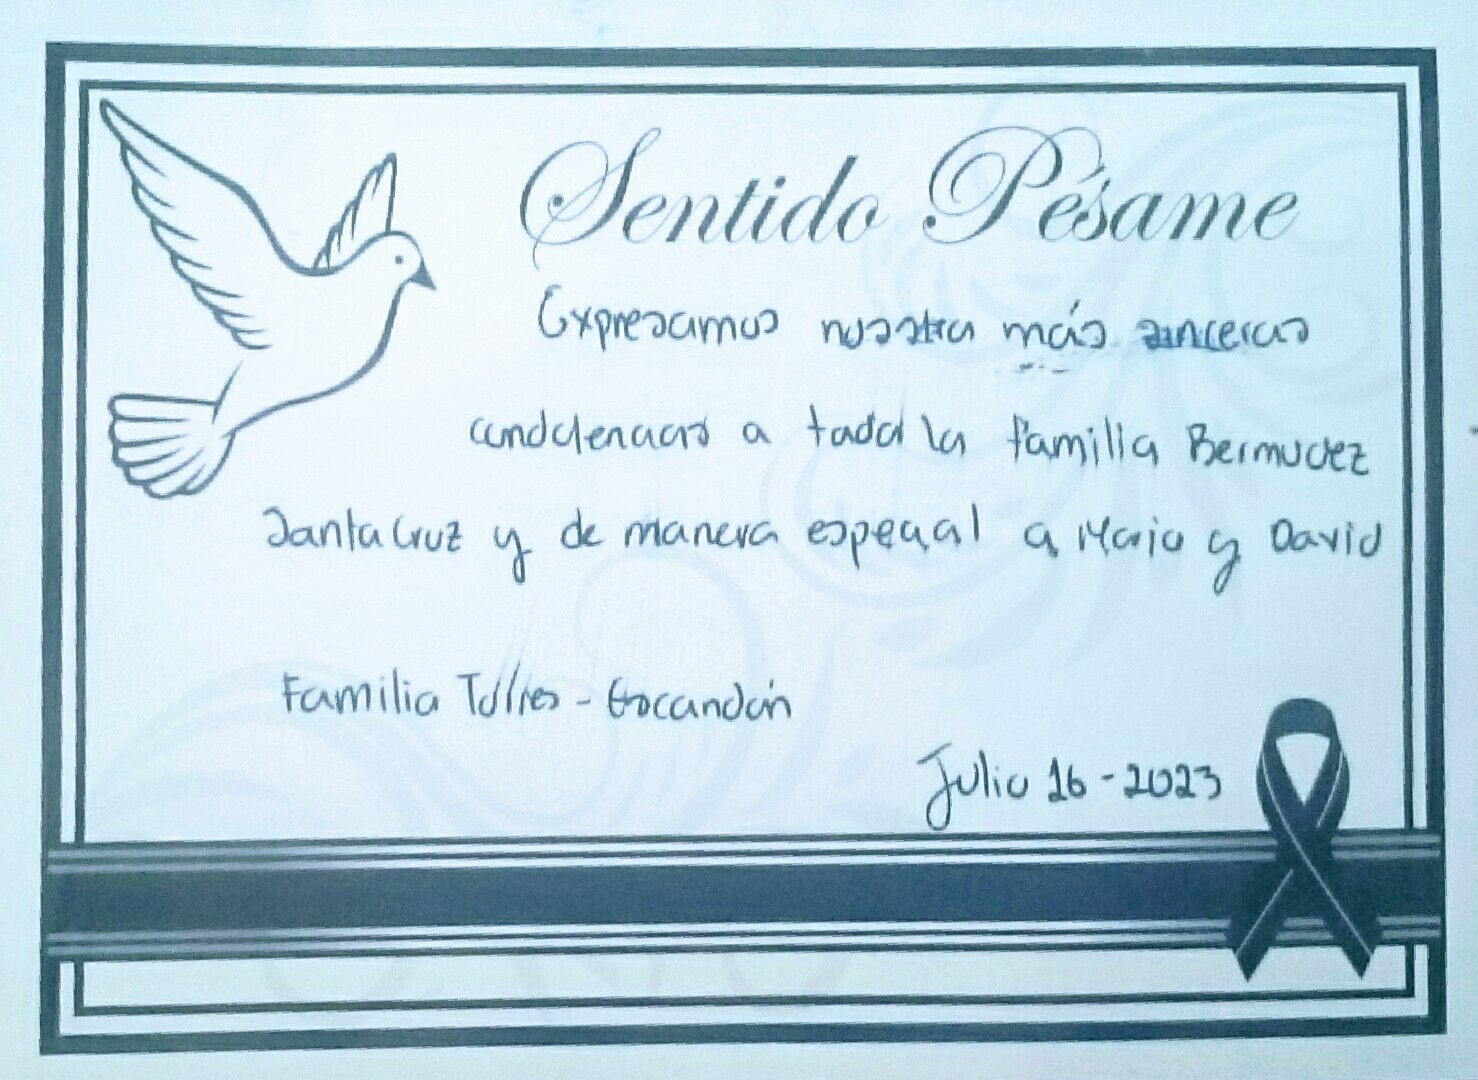 Sentido Pésame
Expresamos nuestra más sinceras
condolencias a toda la familia Bermudez
Santa Cruz y de manera especial a Mario y David
Familia Torres - Escandón
Julio 16 - 2023